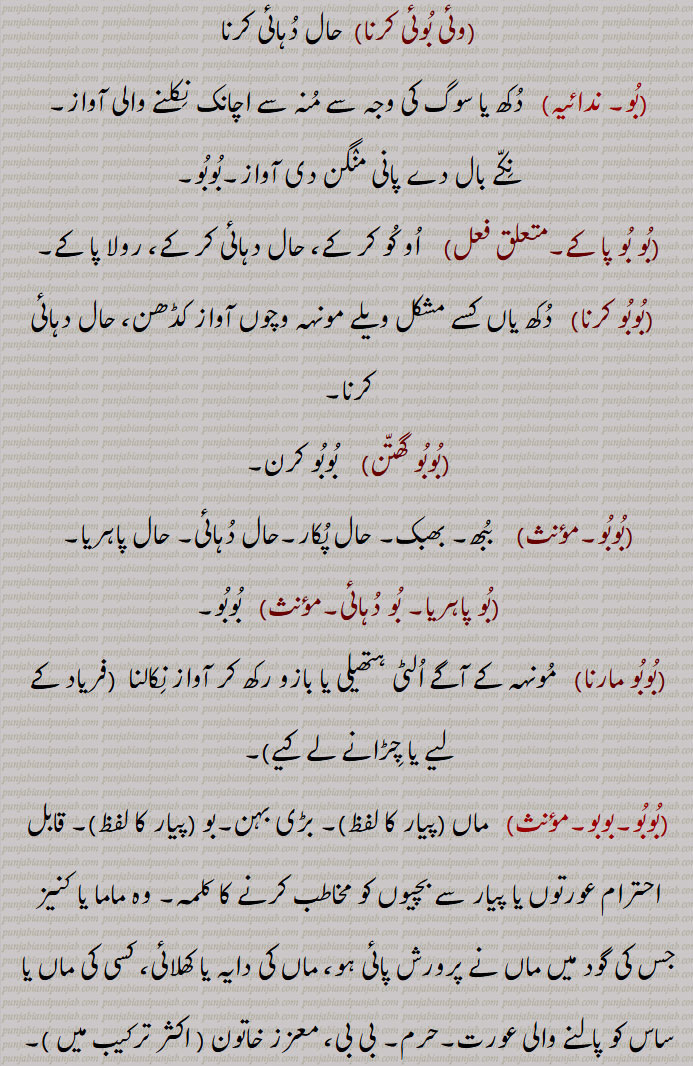 (وئی بُوئی کرنا) حال دُہائی کرنا
(بُو۔ ندائیہ) دُکھ یا سوگ کی وجہ سے مُنہ سے اچانک نِکلنے والی آواز۔
نِکّے بال دے پانی منگن دی آواز۔بُوبُو۔
(بُو بُو پا کے۔متعلق فعل) اُو کُو کر کے، حال دہائی کر کے، رولا پا کے۔
(بُوبُو کرنا) دُکھ یاں کسے مشکل ویلے مونہہ وچوں آواز کڈھن، حال دہائی
کرنا۔
(بُوبُو گھتّن) بُوبُو کرن۔
(بُوبُو۔مؤنث) بُبھ۔ بھبک۔ حال پُکار۔حال دُہائی۔ حال پاہریا۔
(بُو پاہریا۔ بُو دُہائی۔مؤنث) بُوبُو۔
(بُوبُو مارنا) مُونہہ کے آگے اُلٹی ہتھیلی یا بازو رکھ کر آواز نِکالنا (فریاد کے
لیے یا چِڑانے لے کیے)۔
(بُوبُو۔بوبو۔مؤنث) ماں (پیار کا لفظ)۔ بڑی بہن۔بو (پیار کا لفظ)۔ قابل
احترام عورتوں یا پیار سے بچیوں کو مخاطب کرنے کا کلمہ۔ وہ ماما یا کنیز
جس کی گود میں ماں نے پرورش پائی ہو، ماں کی دایہ یا کھلائی، کسی کی ماں یا
ساس کو پالنے والی عورت۔حرم۔ بی بی، معزز خاتون ( اکثر ترکیب میں )۔